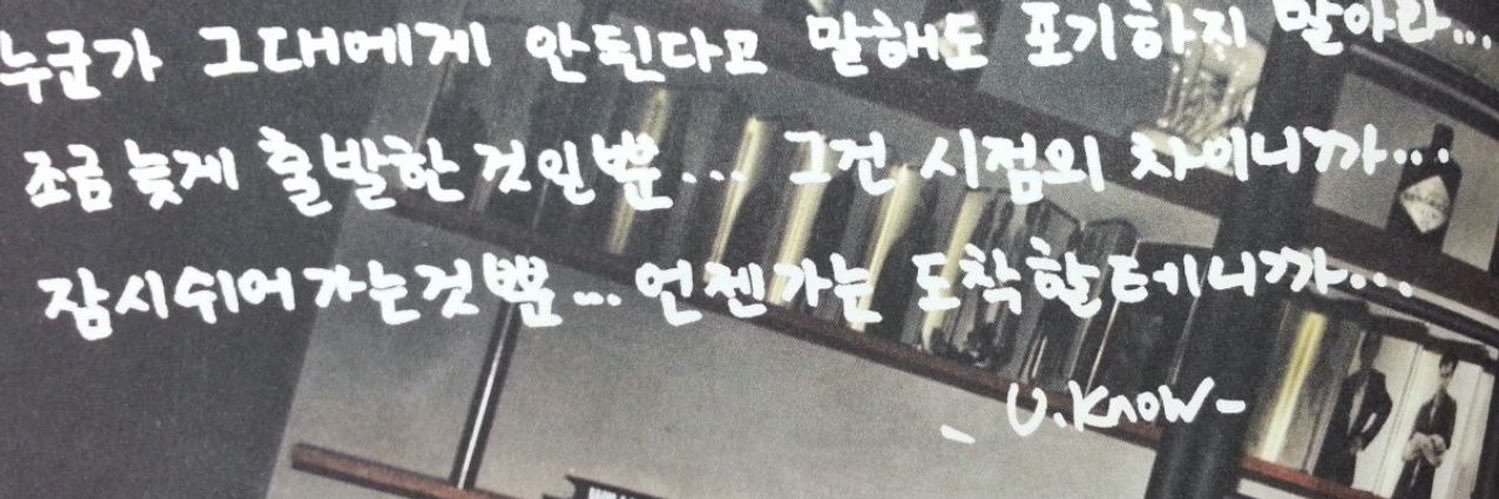 누군가 그대에게 안된다고 말해도 포기하지 말아라...
조금 늦게 출발한 것일뿐... 그건 시점의 차이니까...
잠시쉬어가는것뿐... 언젠가는 도착할테니까...
- U.Know -